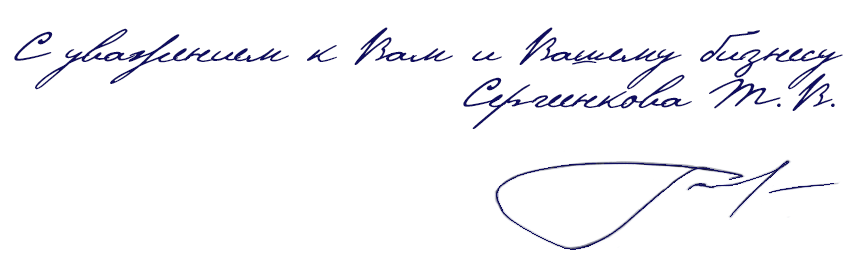 С уважением к Вам и Вашему бизнесу
Сергиенкова Т. В.